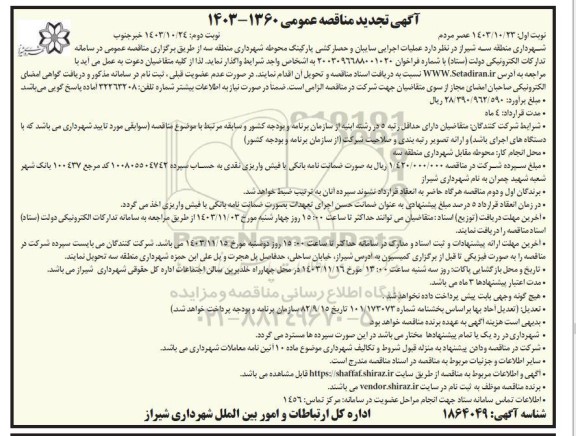 آگهی تجدید مناقصه عمومی ۱۳۶۰-۱۴۰۳
نوبت اول: ۱۴۰۳/۱۰/۲۳ عصر مردم
نوبت دوم: ۱۴۰۳/۱۰/۲۴ خبرجنوب
شهرداری منطقه سه شیراز در نظر دارد عملیات اجرایی سایبان و حصارکشی پارکینگ محوطه شهرداری منطقه سه از طریق برگزاری مناقصه عمومی در سامانه
تدارکات الکترونیکی دولت (ستاد) با شماره فراخوان ۲۰۰۳۰۹۶۶۸۸۰۰۱۰۲۰ به اشخاص واجد شرایط واگذار نماید. لذا از کلیه متقاضیان دعوت به عمل می آید با
مراجعه به آدرس WWW.Setadiran.ir نسبت به دریافت اسناد مناقصه و تحویل آن اقدام نمایند. در صورت عدم عضویت قبلی، ثبت نام در سامانه مذکور و دریافت گواهی امضای
الکترونیکی صاحبان امضای مجاز از سوی متقاضیان جهت شرکت در مناقصه الزامی است. ضمنا در صورت نیاز به اطلاعات بیشتر شماره تلفن: ۳۲۲۶۳۲۰۸ آماده پاسخ گویی می‌باشد.
• مبلغ برآورد: ۲۸/۳۹۰/۹۶۲/۵۹۰ ریال
• مدت قرارداد: ۴ ماه
• شرایط شرکت کنندگان: متقاضیان دارای حداقل رتبه ۵ در رشته ابنیه از سازمان برنامه و بودجه کشور و سابقه مرتبط با موضوع مناقصه (سوابقی مورد تایید شهرداری می باشد که با
دستگاه های اجرای باشند) و ارائه تصویر رتبه بندی و صلاحیت شرکت (از سازمان برنامه و بودجه کشور)
• محل انجام کار: محوطه مقابل شهرداری منطقه سه
• مبلغ سپرده شرکت در مناقصه ۱/۴۲۰/۰۰۰/۰۰۰ ریال به صورت ضمانت نامه بانکی یا فیش واریزی نقدی به حساب سپرده ۱۰۰۸۰۵۵۰۴۷۴۲ کد مرجع ۱۰۰۴۳۷ بانک شهر
شعبه شهید چمران به نام شهرداری شیراز
• برندگان اول و دوم مناقصه هرگاه حاضر به انعقاد قرارداد نشوند سپرده آنان به ترتیب ضبط خواهد شد.
• در زمان انعقاد قرارداد ۵ درصد مبلغ پیشنهادی به عنوان ضمانت حسن اجرای تعهدات بصورت ضمانت نامه بانکی یا فیش واریزی اخذ می گردد.
• آخرین مهلت دریافت (توزیع) اسناد: متقاضیان می توانند حداکثر تا ساعت ۱۵:۰۰ روز چهار شنبه مورخ ۱۴۰۳/۱۱/۰۳ از طریق مراجعه به سامانه تدارکات الکترونیکی دولت (ستاد)
اسناد مناقصه را دریافت نمایند.
• آخرین مهلت ارائه پیشنهادات و ثبت اسناد و مدارک در سامانه حداکثر تا ساعت ۱۵:۰۰ روز دوشنبه مورخ ۱۴۰۳/۱۱/۱۵ می باشد. شرکت کنندگان می بایست سپرده شرکت در
مناقصه را به صورت فیزیکی تا قبل از برگزاری کمیسیون به آدرس شیراز، خیابان ساحلی، حدفاصل پل هجرت و پل علی ابن حمزه شهرداری منطقه سه تحویل نمایند.
• تاریخ و محل بازگشایی پاکات: روز سه شنبه ساعت ۱۳:۰۰ مورخ ۱۴۰۳/۱۱/۱۶ در محل چهارراه خلدبرین سالن اجتماعات اداره کل حقوقی شهرداری شیراز می باشد.
• مدت اعتبار پیشنهادها ۳ ماه می باشد.
• هیچ گونه وجهی بابت پیش پرداخت داده نخواهد شد.
• تعدیل: (تعدیل احاد بها براساس بخشنامه شماره ۱۰۱/۱۷۳۰۷۳ تاریخ ۸۲/۹/۱۵ سازمان برنامه و بودجه پرداخت خواهد شد.)
• بدیهی است هزینه آگهی به عهده برنده مناقصه خواهد بود.
• شهرداری در رد یک یا تمام پیشنهادها مختار می باشد در این صورت سپرده ها مسترد می گردد.
• شرکت در مناقصه ودادن پیشنهاد به منزله قبول شروط و تکالیف شهرداری موضوع ماده ۱۰ آئین نامه معاملات شهرداری می باشد.
• سایر اطلاعات و جزئیات مربوط به مناقصه در اسناد مناقصه مندرج است.
• آگهی و اطلاعات مربوط به مناقصه از طریق سایت https://shaffaf.shiraz.ir قابل مشاهده می باشد.
• برنده مناقصه موظف به ثبت نام در سایت vendor.shiraz.ir می باشند.
• اطلاعات تماس سامانه ستاد جهت انجام مراحل عضویت در سامانه: مرکز تماس: ۱۴۵۶
شناسه آگهی: ۱۸۶۴۰۴۹
اداره کل ارتباطات و امور بین الملل شهرداری شیراز
ParsNamadData
پایگاه اطلاع رسانی مناقصه و مزایده
۰۲۱-۸۸۳۴۹۶۷۰-۵